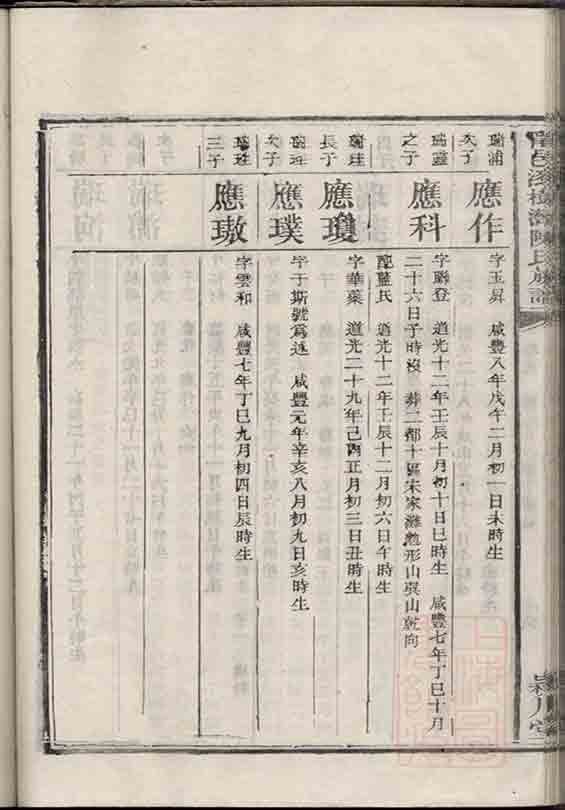 陳氏族譜
瑞浦
次子
應作
字玉昇 咸豐八年戊午二月初一日未時生
瑞靈
之子
應科
字爵登 道光十二年壬辰十月初十日巳時生 咸豐七年丁巳十月
二十六日子時歿 葬二都十區宋家灘 形山 山 向
配藍氏 道光十二年壬辰十二月初六日午時生
瑞珪
長子
應瓊
字華藥 道光二十九年己酉正月初三日丑時生
瑞珪
次子
應璞
字于斯號為述 咸豐元年辛亥八月初九日亥時生
瑞珪
三子
應璈
字雲和 咸豐七年丁巳九月初四日辰時生
潁川堂